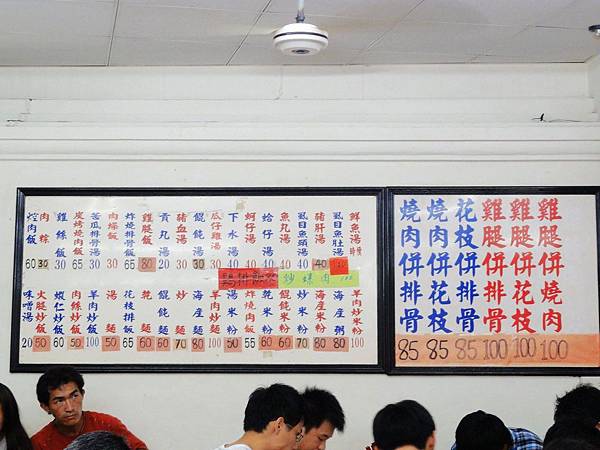 焢肉飯 60
肉粽 30
雞絲飯 30
炭烤燒肉飯 65
苦瓜排骨湯 30
肉燥飯 30
炸燒排骨飯 65
雞腿飯 80
貢丸湯 20
豬血湯 30
餛飩湯 30
瓜仔雞湯 30
下水湯 40
蚵仔湯 40
蛤仔湯 40
魚丸湯
虱目魚頭湯 40
豬肝湯 40
虱目魚肚湯
鮮魚湯 時價
炒螺肉 100
味噌湯
火腿炒飯 50
蝦仁炒飯 60
肉絲炒飯 50
羊肉炒飯 100
湯麵 50
花枝排飯 65
乾麵 60
餛飩麵 60
炒麵 70
海產麵 80
羊肉炒麵 100
湯米粉 50
炸燒肉飯 55
乾米粉 60
餛飩米粉 60
炒米粉 70
海產米粉 80
海產粥 80
羊肉炒米粉 100
燒肉併排骨 85
燒肉併花枝 85
花枝併排骨 85
雞腿併排骨 100
雞腿併花枝 100
雞腿併燒肉 100